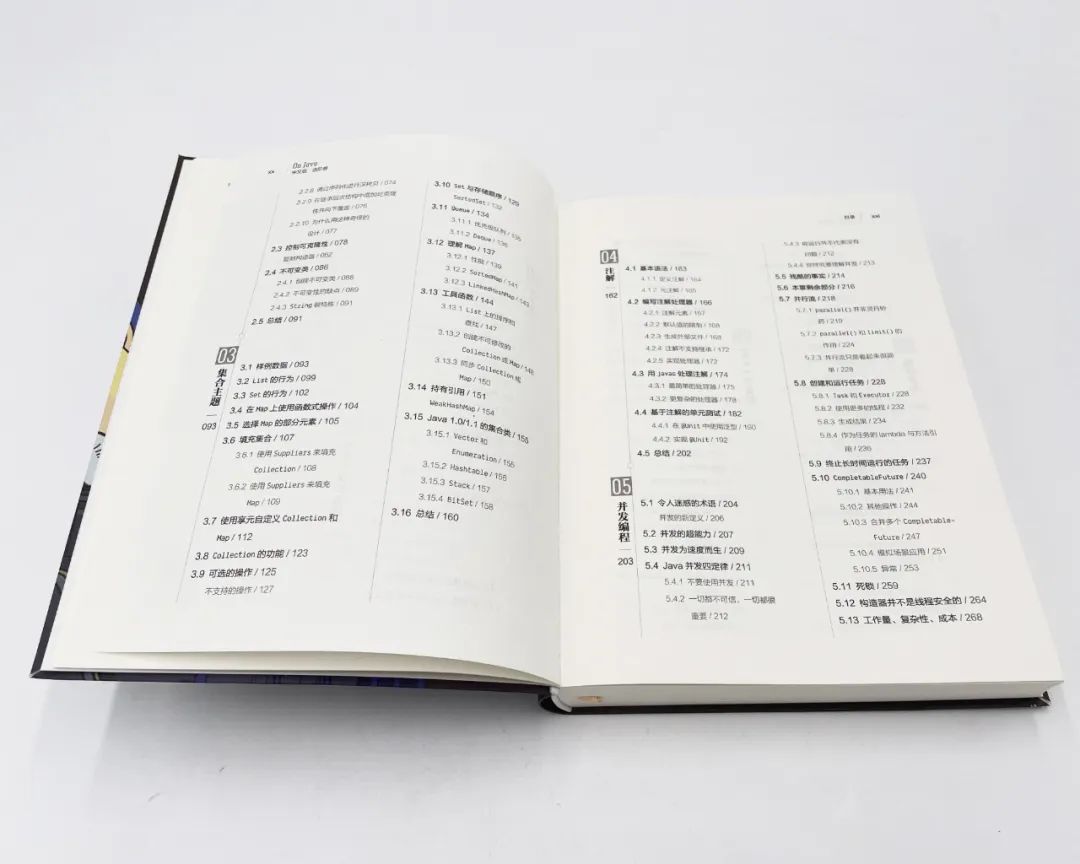 XX
On Java
中文版 进阶卷
2.2.8 通过序列化进行深拷贝 / 074
2.2.9 在继承层次结构中增加克隆
性并向下覆盖 / 075
2.2.10 为什么用这种奇怪的
设计 / 077
2.3 控制可克隆性 / 078
复制构造器 / 082
2.4 不可变类 / 086
2.4.1 创建不可变类 / 088
2.4.2 不可变性的缺点 / 089
2.4.3 String 很特殊 / 091
2.5 总结 / 091
03
集合主题
093
3.1 样例数据 / 093
3.2 List 的行为 / 099
3.3 Set 的行为 / 102
3.4 在 Map 上使用函数式操作 / 104
3.5 选择 Map 的部分元素 / 105
3.6 填充集合 / 107
3.6.1 使用 Suppliers 来填充
Collection / 108
3.6.2 使用 Suppliers 来填充
Map / 109
3.7 使用享元自定义 Collection 和
Map / 112
3.8 Collection 的功能 / 123
3.9 可选的操作 / 125
不支持的操作 / 127
3.10 Set 与存储顺序 / 129
SortedSet / 132
3.11 Queue / 134
3.11.1 优先级队列 / 135
3.11.2 Deque / 136
3.12 理解 Map / 137
3.12.1 性能 / 139
3.12.2 SortedMap / 141
3.12.3 LinkedHashMap / 143
3.13 工具函数 / 144
3.13.1 List 上的排序和
查找 / 147
3.13.2 创建不可修改的
Collection 或 Map / 148
3.13.3 同步 Collection 或
Map / 150
3.14 持有引用 / 151
WeakHashMap / 154
3.15 Java 1.0/1.1 的集合类 / 155
3.15.1 Vector 和
Enumeration / 155
3.15.2 Hashtable / 156
3.15.3 Stack / 157
3.15.4 BitSet / 158
3.16 总结 / 160
目录
XXI
04
注解
162
4.1 基本语法 / 163
4.1.1 定义注解 / 164
4.1.2 元注解 / 165
4.2 编写注解处理器 / 166
4.2.1 注解元素 / 167
4.2.2 默认值的限制 / 168
4.2.3 生成外部文件 / 168
4.2.4 注解不支持继承 / 172
4.2.5 实现处理器 / 172
4.3 用 javac 处理注解 / 174
4.3.1 最简单的处理器 / 175
4.3.2 更复杂的处理器 / 178
4.4 基于注解的单元测试 / 182
4.4.1 在 @Unit 中使用泛型 / 190
4.4.2 实现 @Unit / 192
4.5 总结 / 202
05
并发编程
203
5.1 令人迷惑的术语 / 204
并发的新定义 / 206
5.2 并发的超能力 / 207
5.3 并发为速度而生 / 209
5.4 Java 并发四定律 / 211
5.4.1 不要使用并发 / 211
5.4.2 一切都不可信，一切都很
重要 / 212
5.4.3 能运行并不代表没有
问题 / 212
5.4.4 你终究要理解并发 / 213
5.5 残酷的事实 / 214
5.6 本章剩余部分 / 216
5.7 并行流 / 218
5.7.1 parallel() 并非灵丹妙
药 / 219
5.7.2 parallel() 和 limit() 的
作用 / 224
5.7.3 并行流只是看起来很简
单 / 228
5.8 创建和运行任务 / 228
5.8.1 Task 和 Executor / 228
5.8.2 使用更多的线程 / 232
5.8.3 生成结果 / 234
5.8.4 作为任务的 lambda 与方法引
用 / 236
5.9 终止长时间运行的任务 / 237
5.10 CompletableFuture / 240
5.10.1 基本用法 / 241
5.10.2 其他操作 / 244
5.10.3 合并多个 Completable-
Future / 247
5.10.4 模拟场景应用 / 251
5.10.5 异常 / 253
5.11 死锁 / 259
5.12 构造器并不是线程安全的 / 264
5.13 工作量、复杂性、成本 / 268